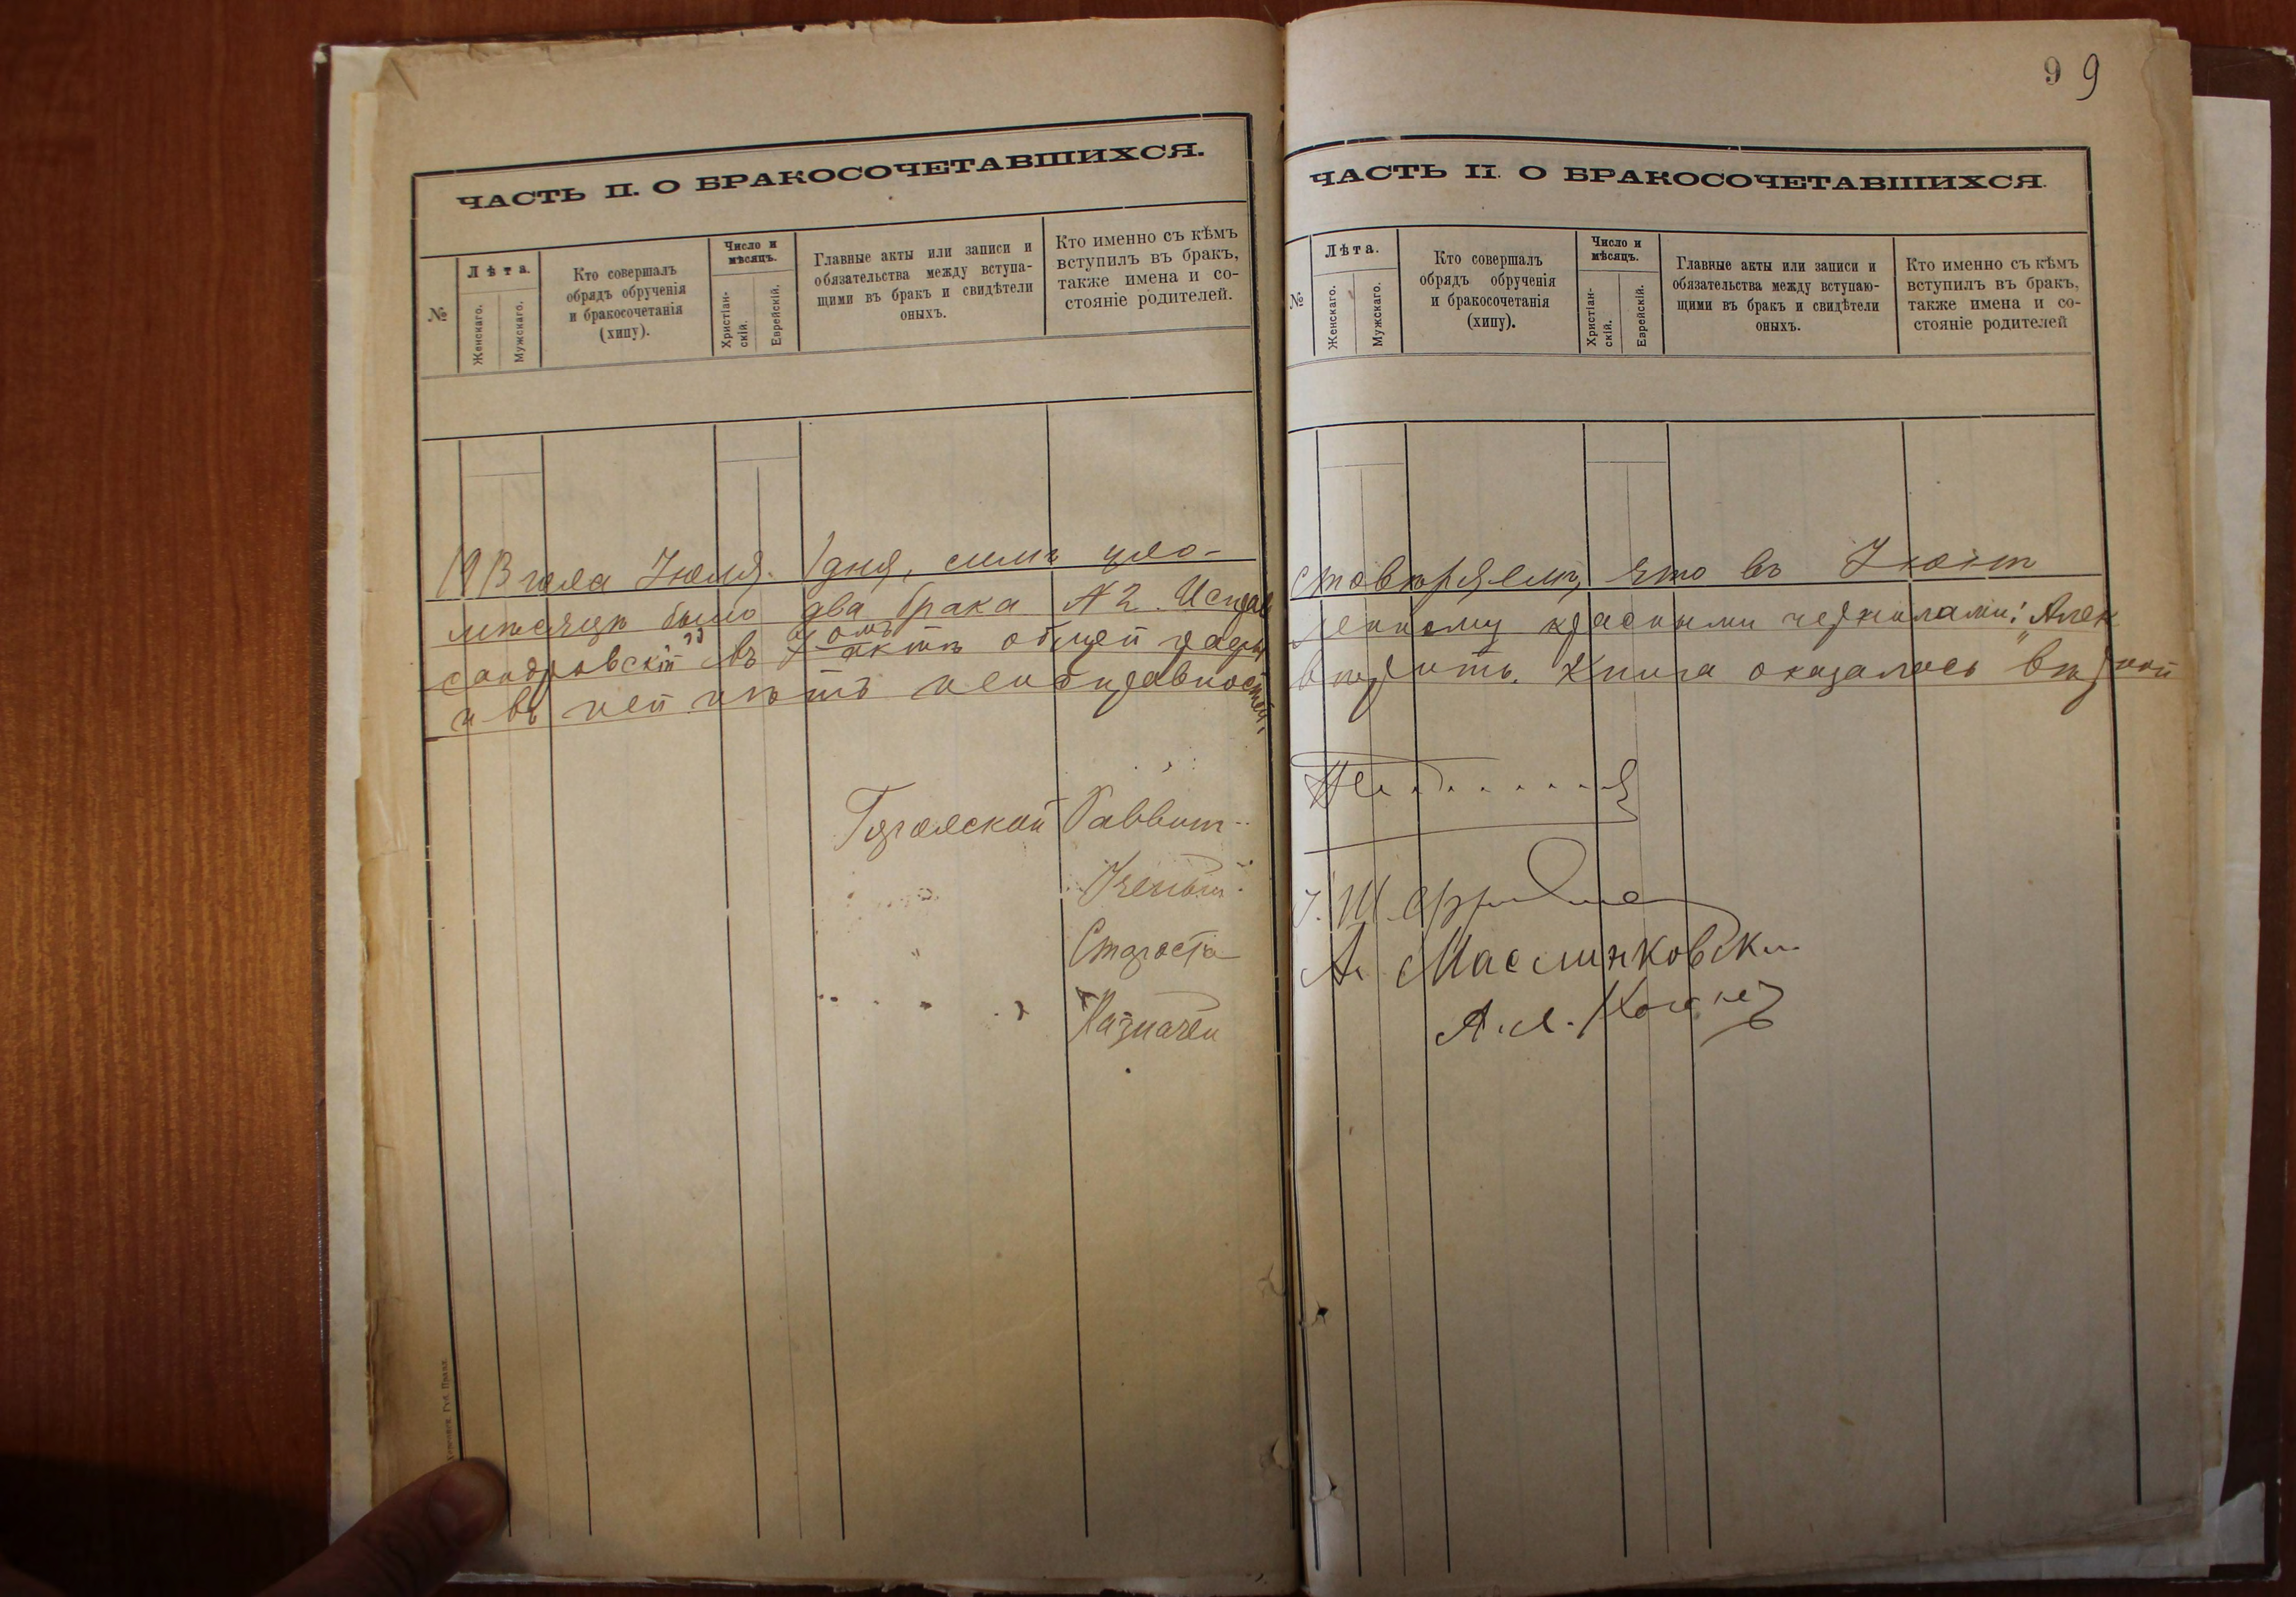 9 9
ЧАСТЬ II. О БРАКОСОЧЕТАВШИХСЯ.
№
Лѣта.
Женскаго.
Мужскаго.
Кто совершалъ
обрядъ обрученія
и бракосочетанія
(хипу).
Число и
мѣсяцъ.
Христіан-
скій.
Еврейскій.
Главные акты или записи и
обязательства между вступа-
щими въ бракъ и свидѣтели
оныхъ.
Кто именно съ кѣмъ
вступилъ въ бракъ,
также имена и со-
стояніе родителей.
ЧАСТЬ II. О БРАКОСОЧЕТАВШИХСЯ.
№
Лѣта.
Женскаго.
Мужскаго.
Кто совершалъ
обрядъ обрученія
и бракосочетанія
(хипу).
Число и
мѣсяцъ.
Христіан-
скій.
Еврейскій.
Главные акты или записи и
обязательства между вступаю-
щими въ бракъ и свидѣтели
оныхъ.
Кто именно съ кѣмъ
вступилъ въ бракъ,
также имена и со-
стояніе родителей
Іюля 1 дня, симъ удо-
стовѣряемъ, что въ Іюнѣ
мѣсяцѣ было два брака № 2. Исправ
ленному красными чернилами: Алек
сандровскій въ актѣ общей
вѣрить. Книга оказалось вѣрной
и въ ней нѣтъ неисправностей.
Городской Раввинъ
Ученый
Староста
А.
Казначей
А. Л.
Губ. Правл.